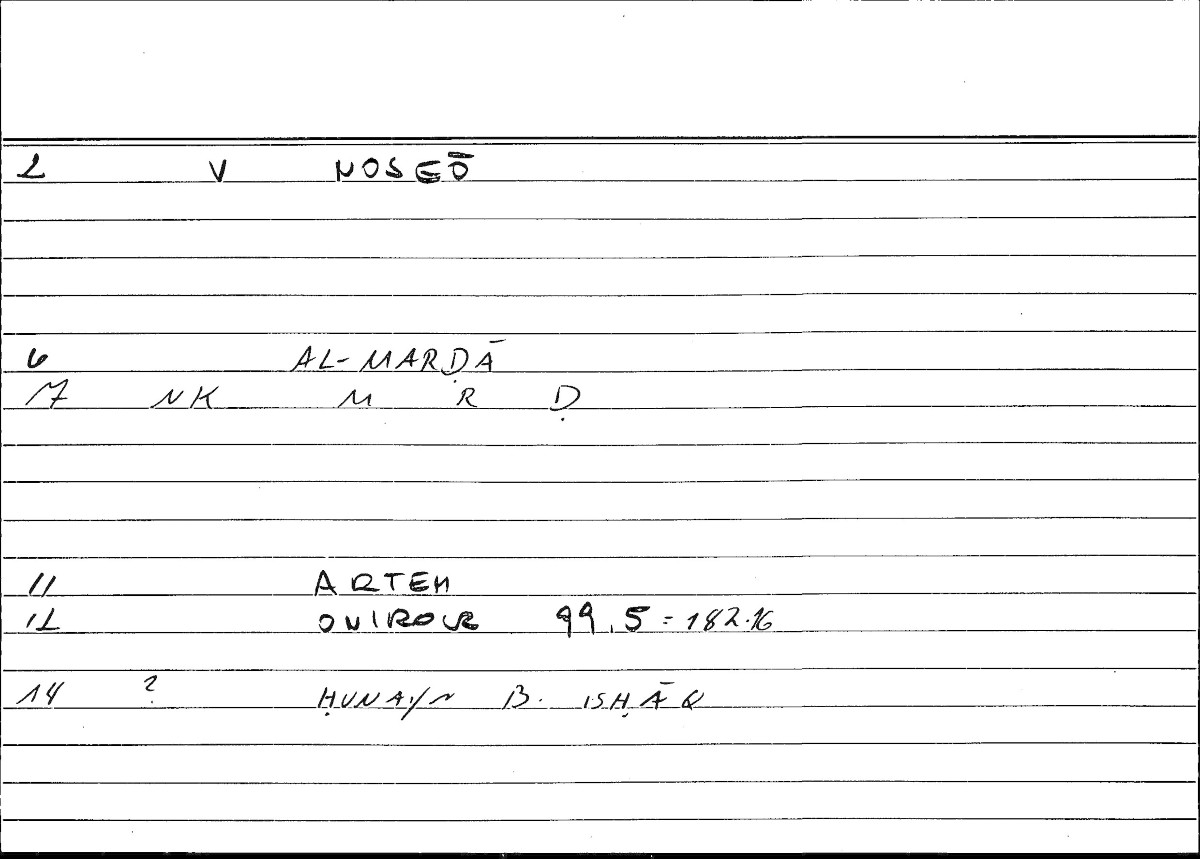 2 V NOSEŌ
6 AL-MARḌĀ
7 NK M R Ḍ
11 ARTEM
12 ONIROCR 99.5 = 182.16
14 ? ḤUNAYN B. ISḤĀQ